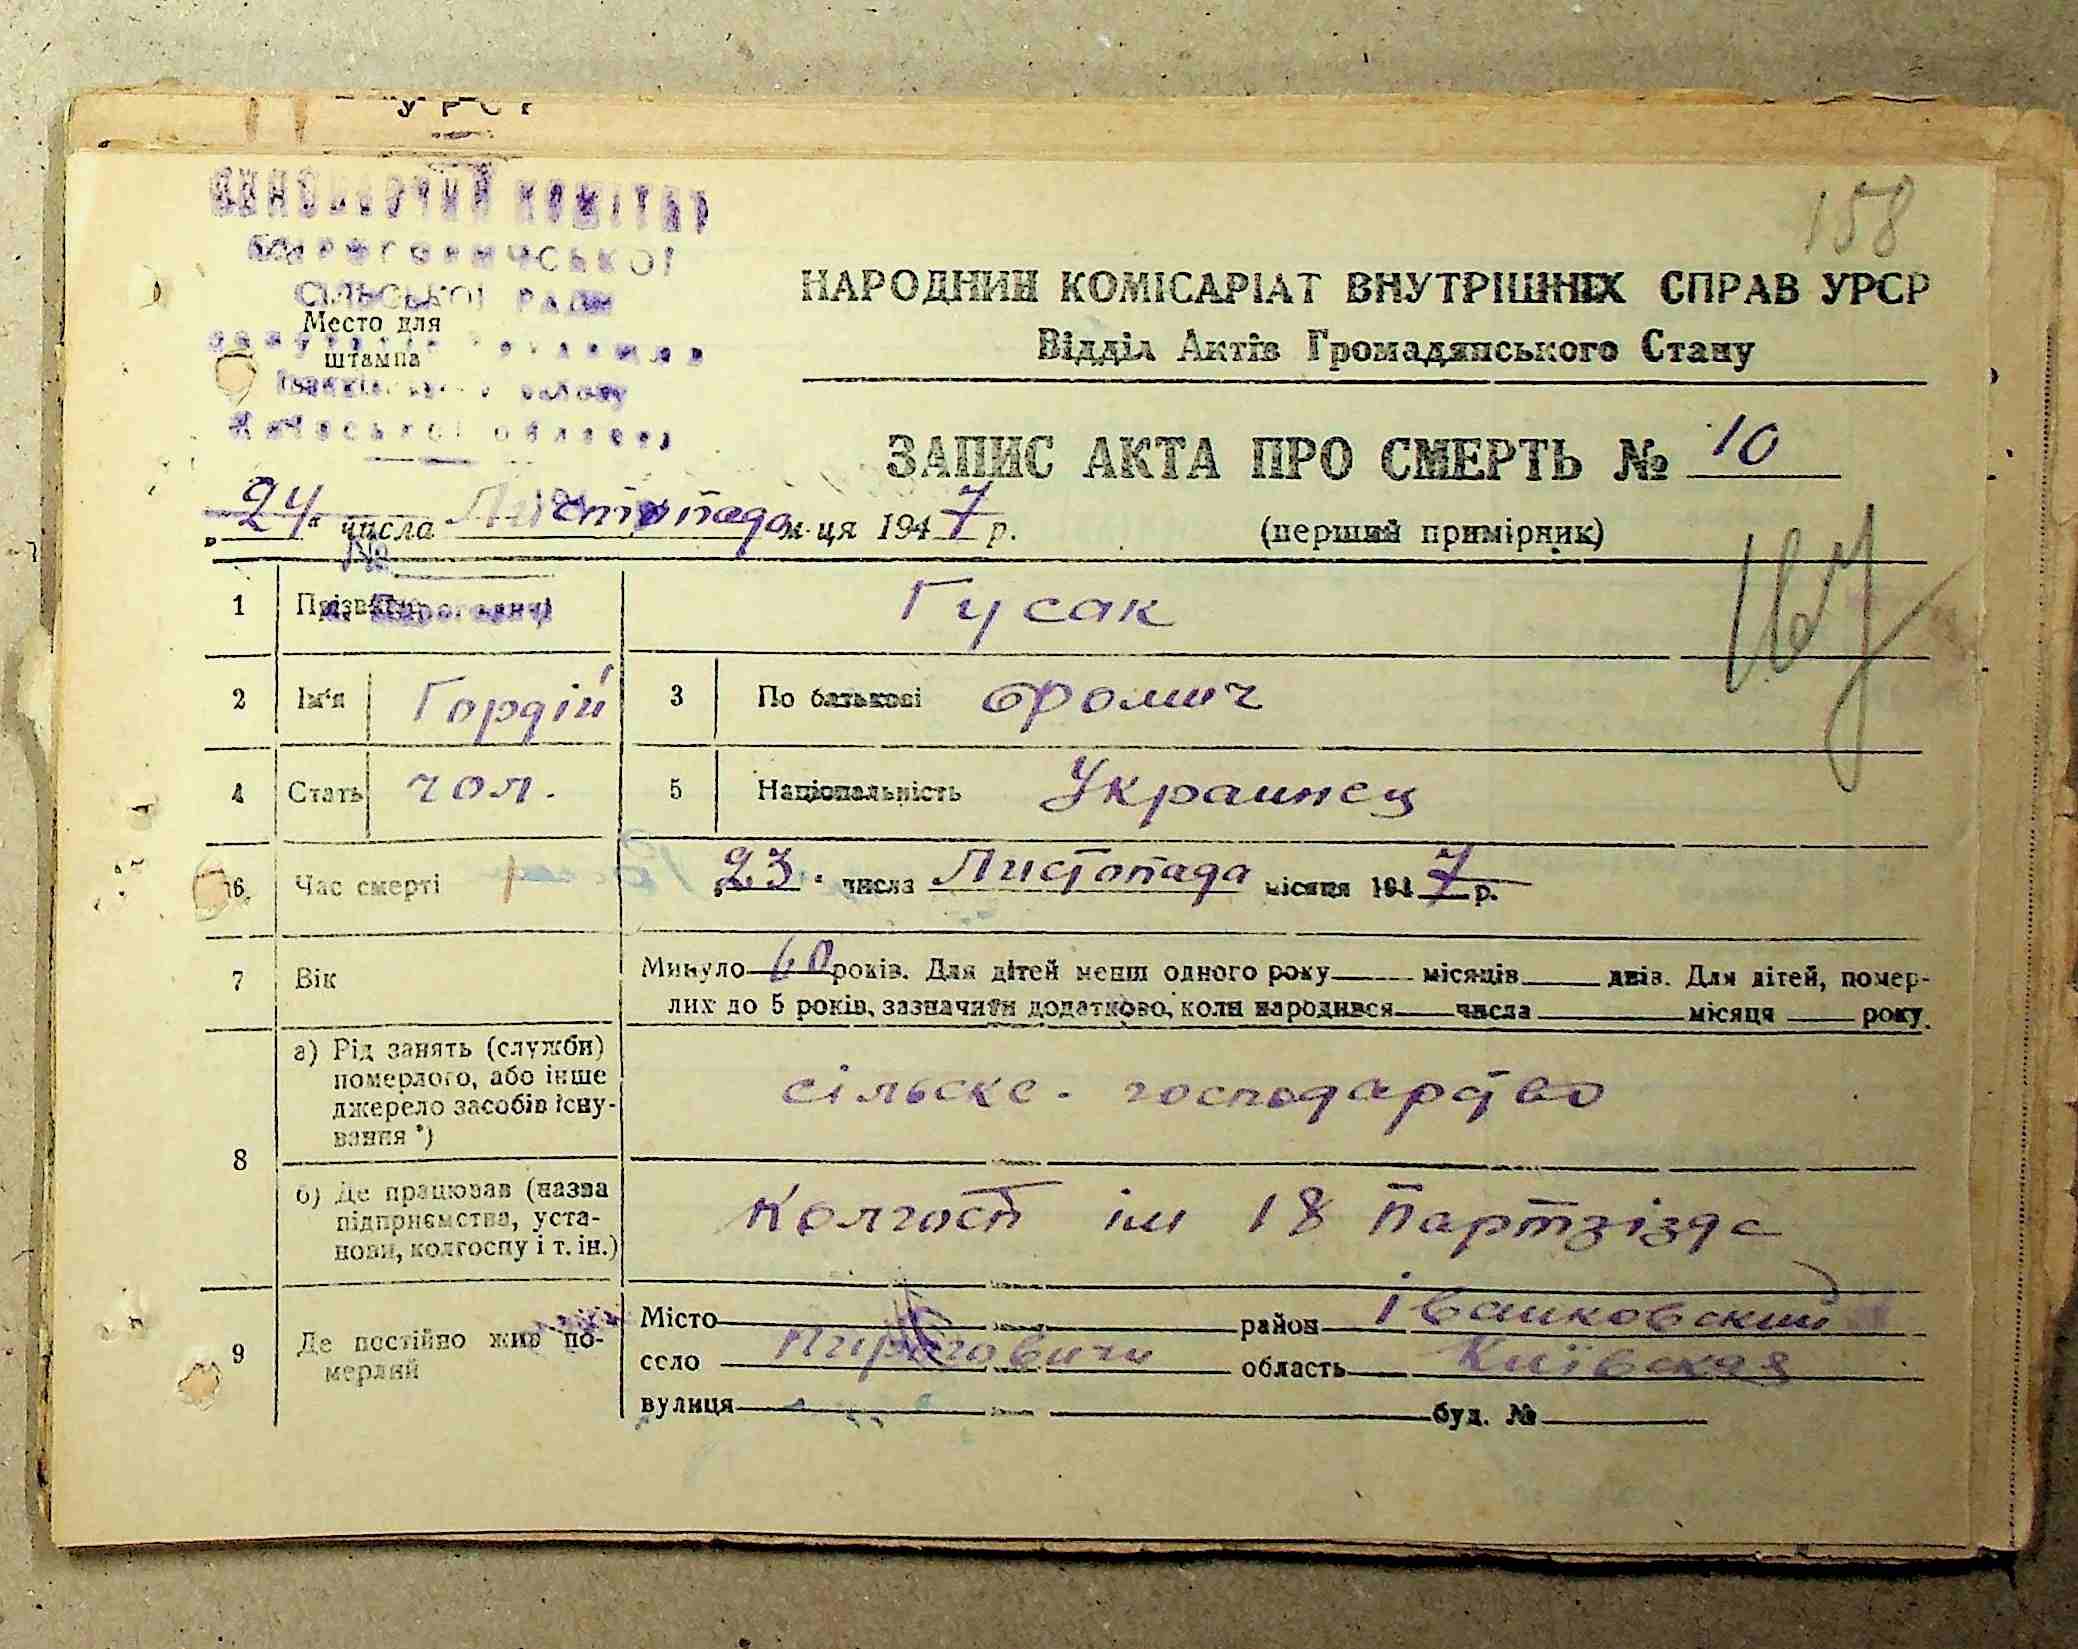 158
КОМІТЕТ
СІЛЬСЬКОЇ РАДИ
Место для
штампа
Київської області
НАРОДНИЙ КОМІСАРІАТ ВНУТРІШНІХ СПРАВ УРСР
Відділ Актів Громадянського Стану
ЗАПИС АКТА ПРО СМЕРТЬ № 10
„24“ числа Листопада м-ця 1947 р.
(перший примірник)
№
1 Прізвище Гусак
2 Ім'я Гордій 3 По батькові Фомич
4 Стать чол. 5 Національність Украинец
6 Час смерті „23“ числа Листопада місяця 1947 р.
7 Вік Минуло 60 років. Для дітей менш одного року місяців днів. Для дітей, помер-
лих до 5 років, зазначити додатково, коли народився числа місяця року.
8 а) Рід занять (служби)
померлого, або інше
джерело засобів існу-
вання *)
сільске - господарство
б) Де працював (назва
підприємства, уста-
нови, колгоспу і т. ін.)
Колгосп ім 18 Партзізда
9 Де постійно жив по-
мерлий
Місто район Іванковский
село Пироговичи область Київская
вулиця буд. №